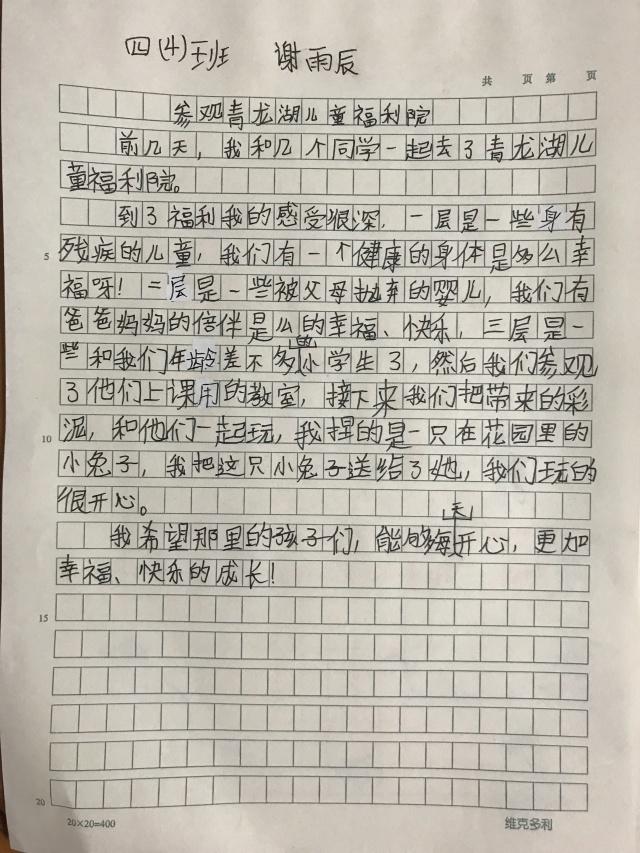 四(4)班 谢雨辰
共 页 第 页
参观青龙湖儿童福利院
前几天，我和几个同学一起去了青龙湖儿
童福利院。
到了福利我的感受很深，一层是一些身有
5 残疾的儿童，我们有一个健康的身体是多么幸
福呀！二层是一些被父母抛弃的婴儿，我们有
爸爸妈妈的倍伴是么的幸福、快乐，三层是一
些和我们年龄差不多的小学生了，然后我们参观
了他们上课用的教室，接下来我们把带来的彩
10 泥，和他们一起玩，我捏的是一只在花园里的
小兔子，我把这只小兔子送给了她，我们玩的
很开心。
我希望那里的孩子们，能够每天开心，更加
幸福、快乐的成长！
15
20
20×20=400 维克多利